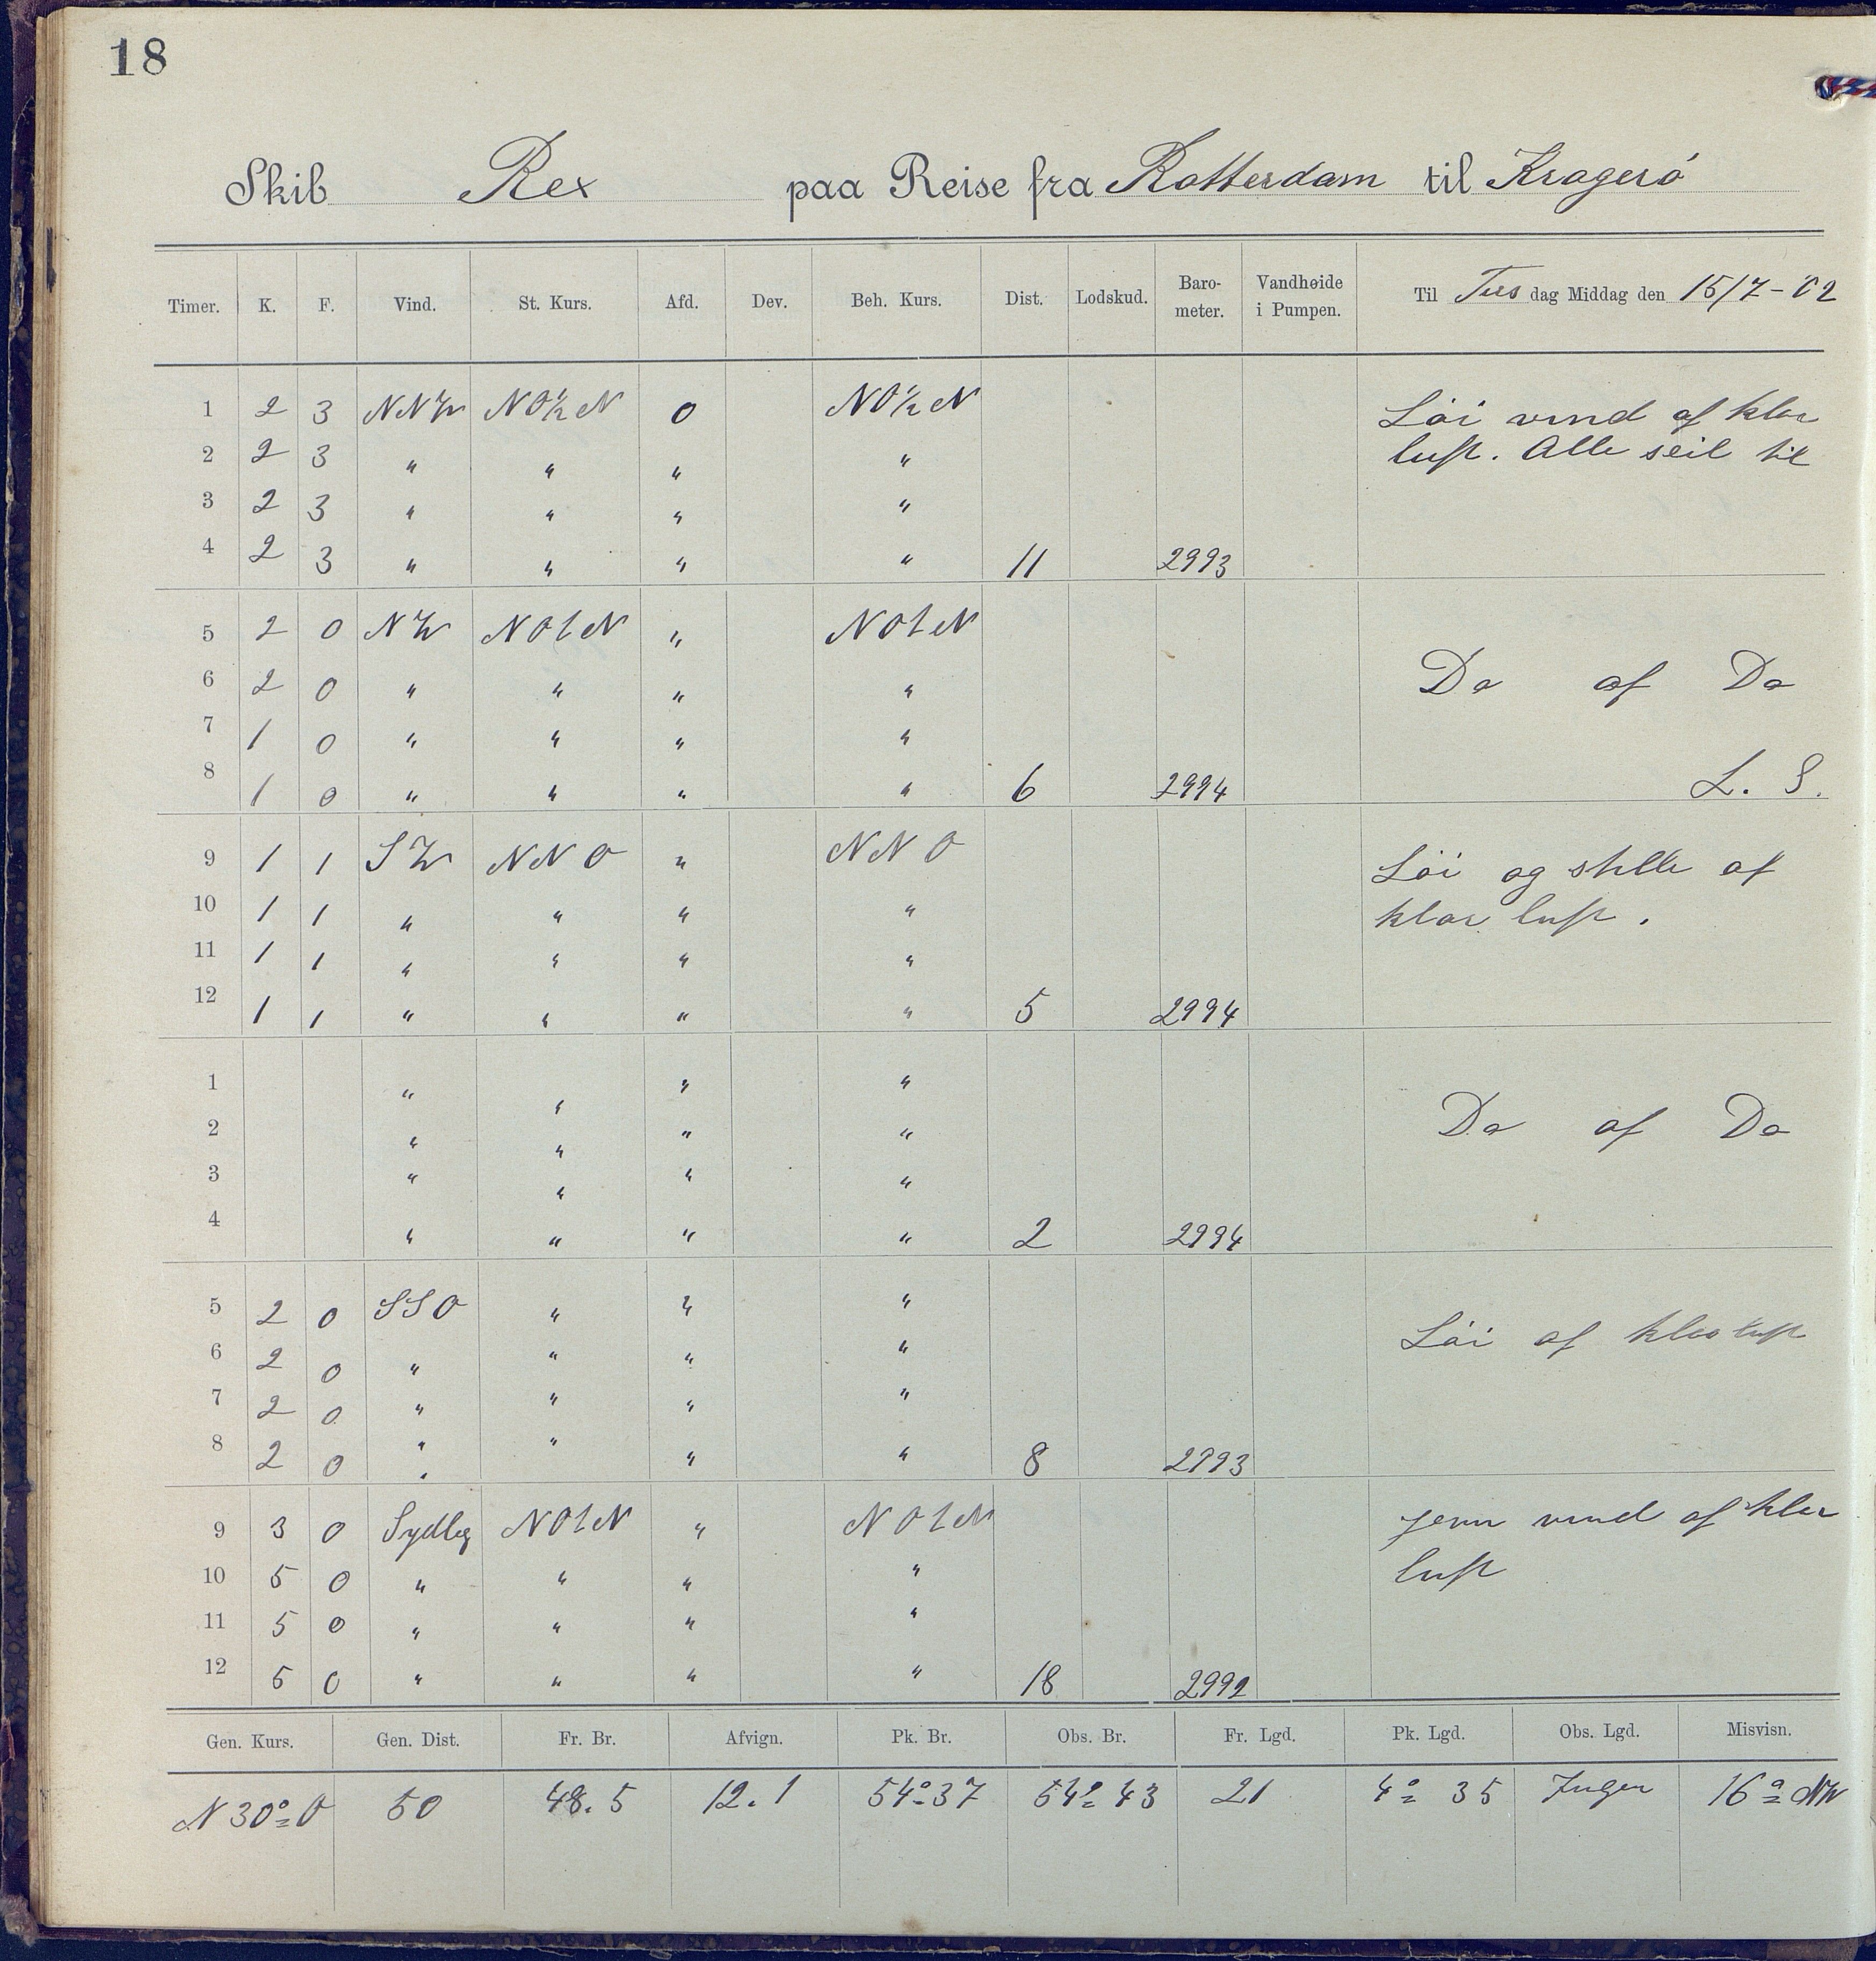 18
Skib Rex paa Reise fra Rotterdam til Kragerö
Timer. K. F. Vind. St. Kurs. Afd. Dev. Beh. Kurs. Dist. Lodskud. Baro-meter. Vandhøide i Pumpen. Til Tirs dag Middag den 15/7-02
1 2 3 NNW NO½N 0 NO½N Löi vind af klar
2 2 3 " " " " luft. Alle seil til
3 2 3 " " " "
4 2 3 " " " " 11 2993
5 2 0 NW NOtN " NOtN
6 2 0 " " " " Do af Do
7 1 0 " " " "
8 1 0 " " " " 6 2994 L. S.
9 1 1 SW NNO " NNO Löi og stille af
10 1 1 " " " " klar luft.
11 1 1 " " " "
12 1 1 " " " " 5 2994
1 " " " "
2 " " " " Do af Do
3 " " " "
4 " " " " 2 2994
5 2 0 SSO " " " Löi af klar luft
6 2 0 " " " "
7 2 0 " " " "
8 2 0 " " " " 8 2993
9 3 0 Sydlig NOtN " NOtN jevn vind af klar
10 5 0 " " " " luft
11 5 0 " " " "
12 5 0 " " " " 18 2992
Gen. Kurs. Gen. Dist. Fr. Br. Afvign. Pk. Br. Obs. Br. Fr. Lgd. Pk. Lgd. Obs. Lgd. Misvisn.
N 30° O 50 48.5 12.1 54°37 54° 43 21 4° 35 Ingen 16° NW